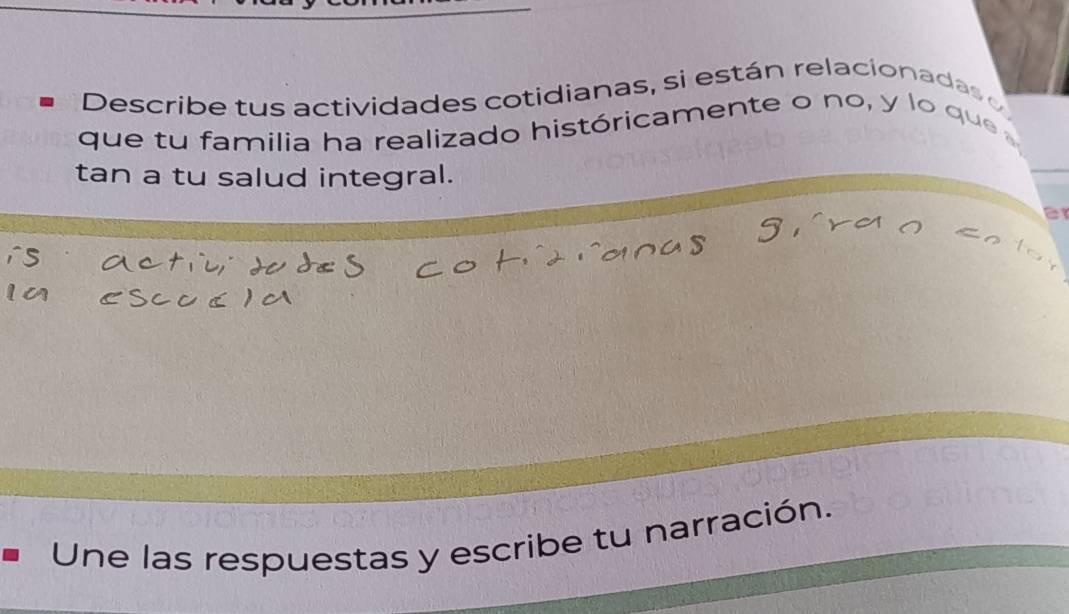 Describe tus actividades cotidianas, si están relacionadas
que tu familia ha realizado históricamente o no, y lo que
tan a tu salud integral.
is actividades cotidianas giran entor
la escuela
Une las respuestas y escribe tu narración.